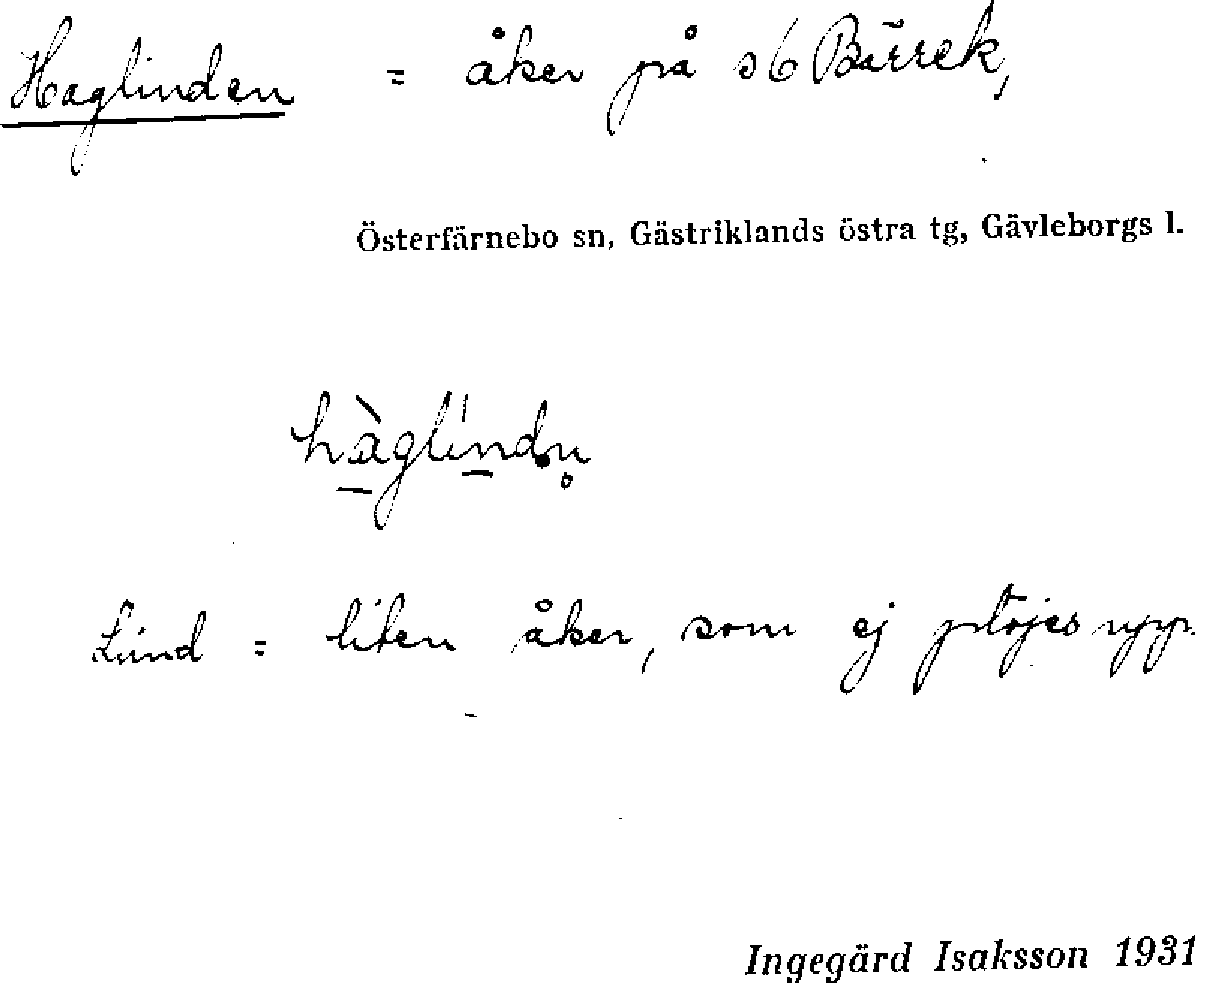 Haglinden = åker på s6 Bärrek,
Österfärnebo sn, Gästriklands östra tg, Gävleborgs l.
hàglindn̥
Lind = liten åker, som ej plöjes upp.
Ingegärd Isaksson 1931